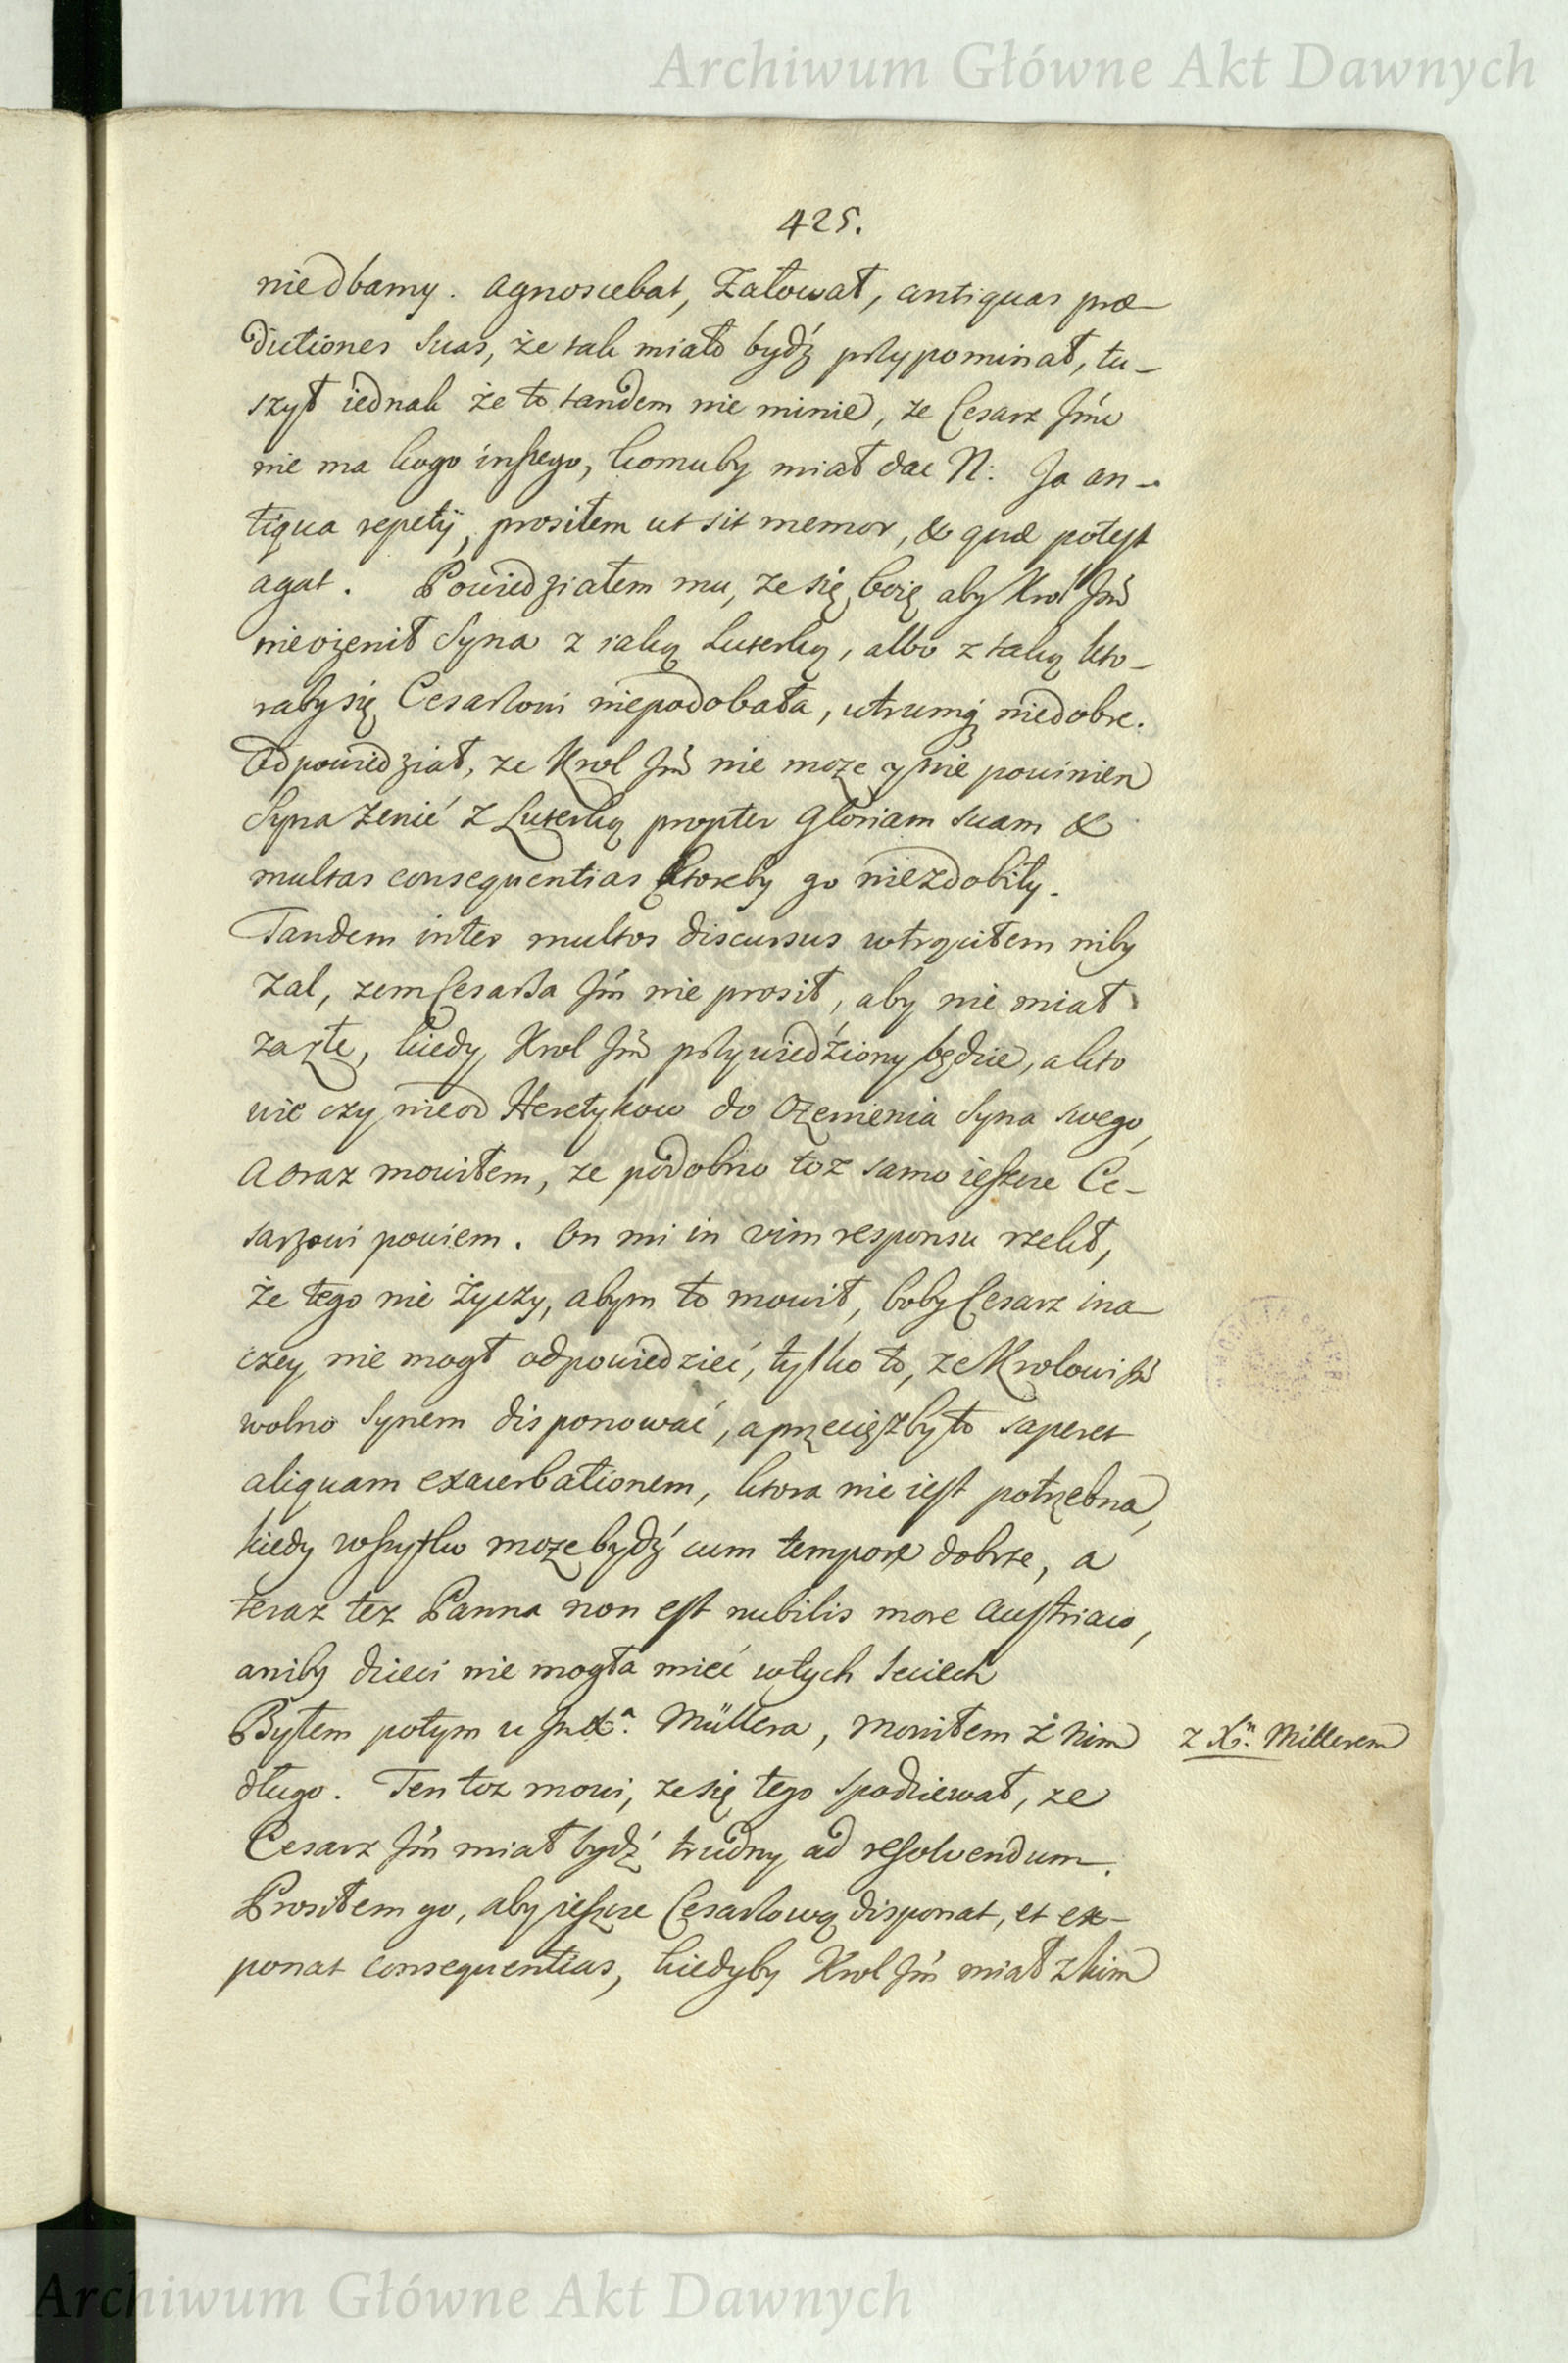 Archiwum Główne Akt Dawnych
425.
niedbamy. agnoscebat, Załował, antiquas præ-
dictiones suas, że tak miało bydź przypominał, tu-
szył iednak że to tandem nie minie, ze Cesarz Jm̃
nie ma kogo inszego, komuby miał dac N: Ja an-
tiqua repetij, prosiłem ut sit memor, & quæ potest
agat. Powiedziałem mu, ze się boię aby Krol Jm̃
nieożenił Syna z iaką Luterką, albo z taką kto-
raby się Cesarzowi niepodobała, utrumq niedobre.
Odpowiedział, ze Krol Jm̃ nie moze y nie powinien
Syna żenić z Luterką propter Gloriam suam &
multas consequentias ktoreby go niezdobiły.
Tandem inter multos discursus wtrąciłem niby
zal, zem Cesarza Jm̃ nie prosił, aby nie miał
za złe, kiedy Krol Jm̃ przywiedźiony będzie, a kto
wie czy nieod Heretykow do Ozenienia Syna swego,
a oraz mowiłem, ze podobno toz samo ieszcze Ce-
sarzowi powiem. On mi in vim responsu rzekł,
że tego nie życzy, abym to mowił, boby Cesarz ina
czey nie mogł odpowiedzieć, tylko to, ze Krolowi Jm̃
wolno Synem disponować, a przecięzby to saperet
aliquam exacerbationem, ktora nie iest potrzebna,
kiedy wszystko moze bydź cum tempore dobrze, a
teraz tez Panna non est nubilis more Austriaco,
aniby dzieci nie mogła mieć w tych leciech
Byłem potym u Jm̃ X.ᵃ Müllera, mowiłem z nim
z X.ⁿ Millerem
długo. Ten toz mowi, ze się tego spodziewał, ze
Cesarz Jm̃ miał bydź trudny ad resolvendum.
Prosiłem go, aby ieszcze Cesarzową disponat, et ex-
ponat consequentias, kiedyby Krol Jm̃ miał z kim
Archiwum Główne Akt Dawnych